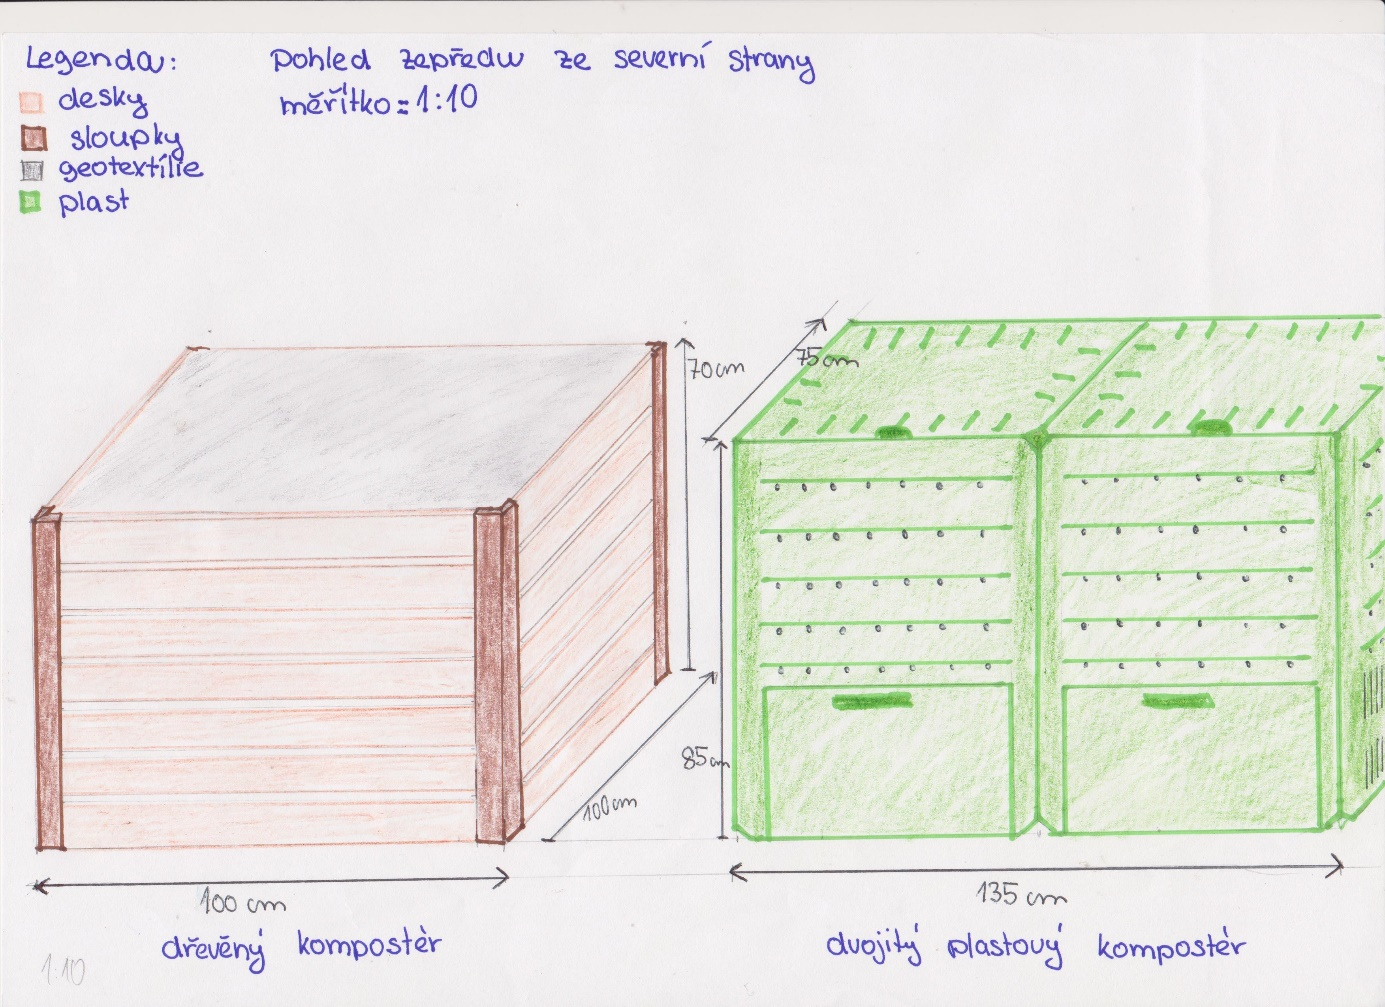 Legenda:
desky
sloupky
geotextílie
plast
Pohled zepředu ze severní strany
měřítko=1:10
70cm
75cm
85cm
100cm
100 cm
135 cm
dřevěný kompostér
dvojitý plastový kompostér
1:10